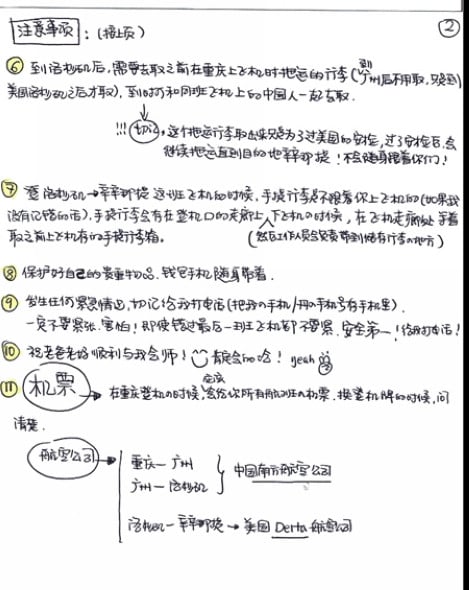 注意事项：(接上页) ②
⑥ 到洛杉矶后，需要去取之前在重庆上飞机时托运的行李(到广州后不用取，只要到
美国洛杉矶之后才取)，到时可和同班飞机上的中国人一起去取.
!!! 切记，这个托运行李取出来只是为了过美国的安检，过了安检后，会
继续托运直到目的地辛辛那提！不会随身跟着你们！
⑦ 登洛杉矶→辛辛那提 这班飞机的时候，手提行李是不跟着你上飞机的(如果我
没有记错的话)，手提行李会存在登机口的走廊上，下飞机的时候，在飞机走廊处等着
取之前上飞机存的手提行李箱。(然后工作人员会负责带到储存行李的地方)
⑧ 保护好自己的贵重物品、钱包手机随身带着.
⑨ 发生任何紧急情况，切记给我打电话(把我的手机/ 的手机号存手机里).
一定不要紧张、害怕！即使错过最后一班飞机都不要紧，安全第一！给我打电话！
⑩ 祝老爸老妈顺利与我会师！肯定会的哈！yeah
⑪ 机票 → 在重庆登机的时候，应该会给你所有航班的机票. 换登机牌的时候，问
清楚.
航空公司 →
重庆—广州
广州—洛杉矶
中国南方航空公司
洛杉矶—辛辛那提 → 美国 Derta 航空公司